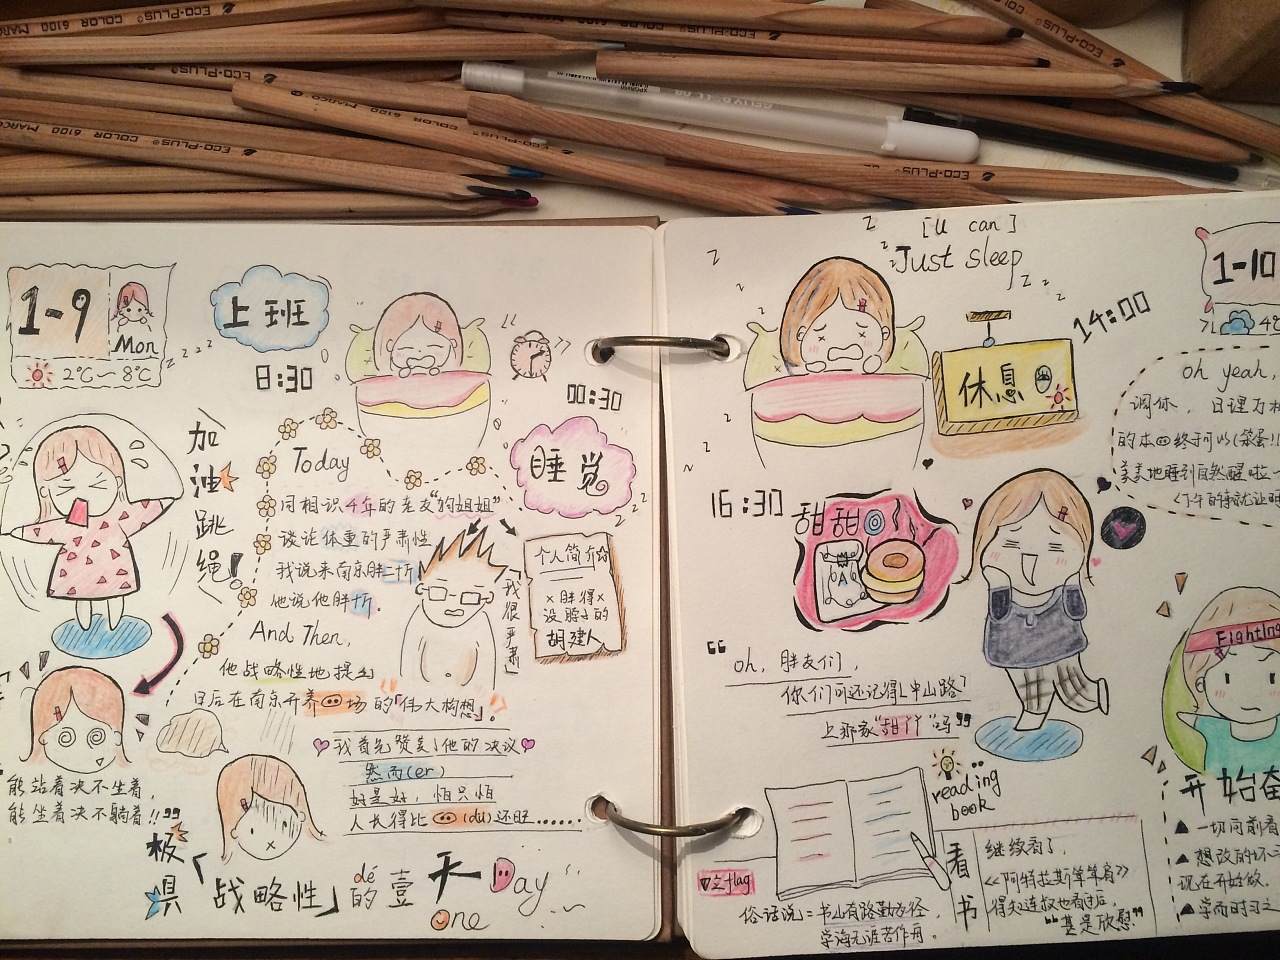 ECO-PLUS® COLOR 6100 MARCO
ECO-PLUS®
MARCO® 6100 COLOR ECO-PLUS®
ECO-PLUS®
1-9
Mon
2℃~8℃
上班
8:30
00:30
睡觉
加油跳绳!
Today
同相识4年的老友"狗姐姐"
谈论体重的严肃性
我说来南京胖二斤
他说他胖1斤.
And Then,
他战略性地提出
日后在南京开养场的「伟大构想」.
「我很严肃」
个人简介
×胖得×
没脖子的
胡建人
我首先赞美了他的决议
然而(er)
好是好，怕只怕
人长得比(du)还旺......
能站着决不坐着,
能坐着决不躺着!!"
极具「战略性」的壹天Day
dé
One
[U can]
Just sleep
14:00
休息
1-10
4℃
oh yeah,
调休，日理万机
的本终于可以(笨蛋!!
美美地睡到自然醒啦
16:30
甜甜
"oh, 胖友们,
你们可还记得上中山路
上那家"甜丫丫"吗"
Fighting
开始奋
▲一切向前看
▲想改的坏
现在开始做.
▲学而时习之
reading
book
看书
继续看了,
《阿特拉斯耸耸肩》
得知连叔也看过后,
"甚是欣慰"
立flag
俗话说=书山有路勤为径,
学海无涯苦作舟.